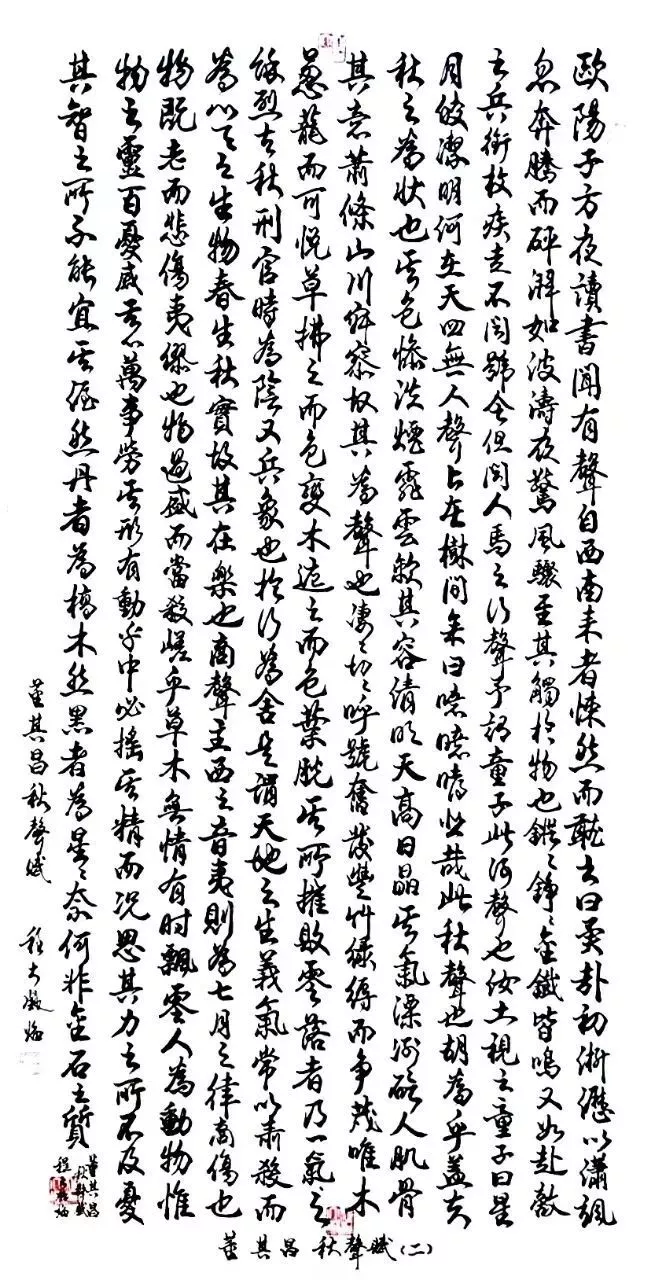 歐陽子方夜讀書聞有聲自西南来者悚然而聽之曰異哉初淅瀝以瀟颯
忽奔騰而砰湃如波濤夜驚風驟至其觸於物也鏦々錚々金鐵皆鳴又如赴敵
之兵銜枚疾走不聞號令但聞人馬之行聲予謂童子此何聲也汝出視之童子曰星
月皎潔明河在天四無人聲々在樹間余曰噫噫嘻悲哉此秋聲也胡為乎盖夫
秋之為狀也其色慘淡煙霏雲斂其容清明天高日晶其氣凓冽砭人肌骨
其意蕭條山川寂寥故其為聲也淒々切々呼號奮發豐草綠縟而争茂唯木
葱蘢而可悦草拂之而色變木遭之而色葉脱其所摧敗零落者乃一氣之
餘烈夫秋刑官時為陰又兵象也於行為金是謂天地之生義氣常以肅殺而
為心天之生物春生秋實故其在樂也商聲主西之音夷則為七月之律商傷也
物既老而悲傷夷戮也物過盛而當殺嗟乎草木無情有时飄零人為動物惟
物之靈百憂感其心萬事勞其形有動乎中必搖其精而况思其力之所不及憂
其智之所不能宜其渥然丹者為槁木然黑者為星々奈何非金石之質
董其昌秋聲賦
董其昌
秋聲賦
董其昌秋聲賦(二)